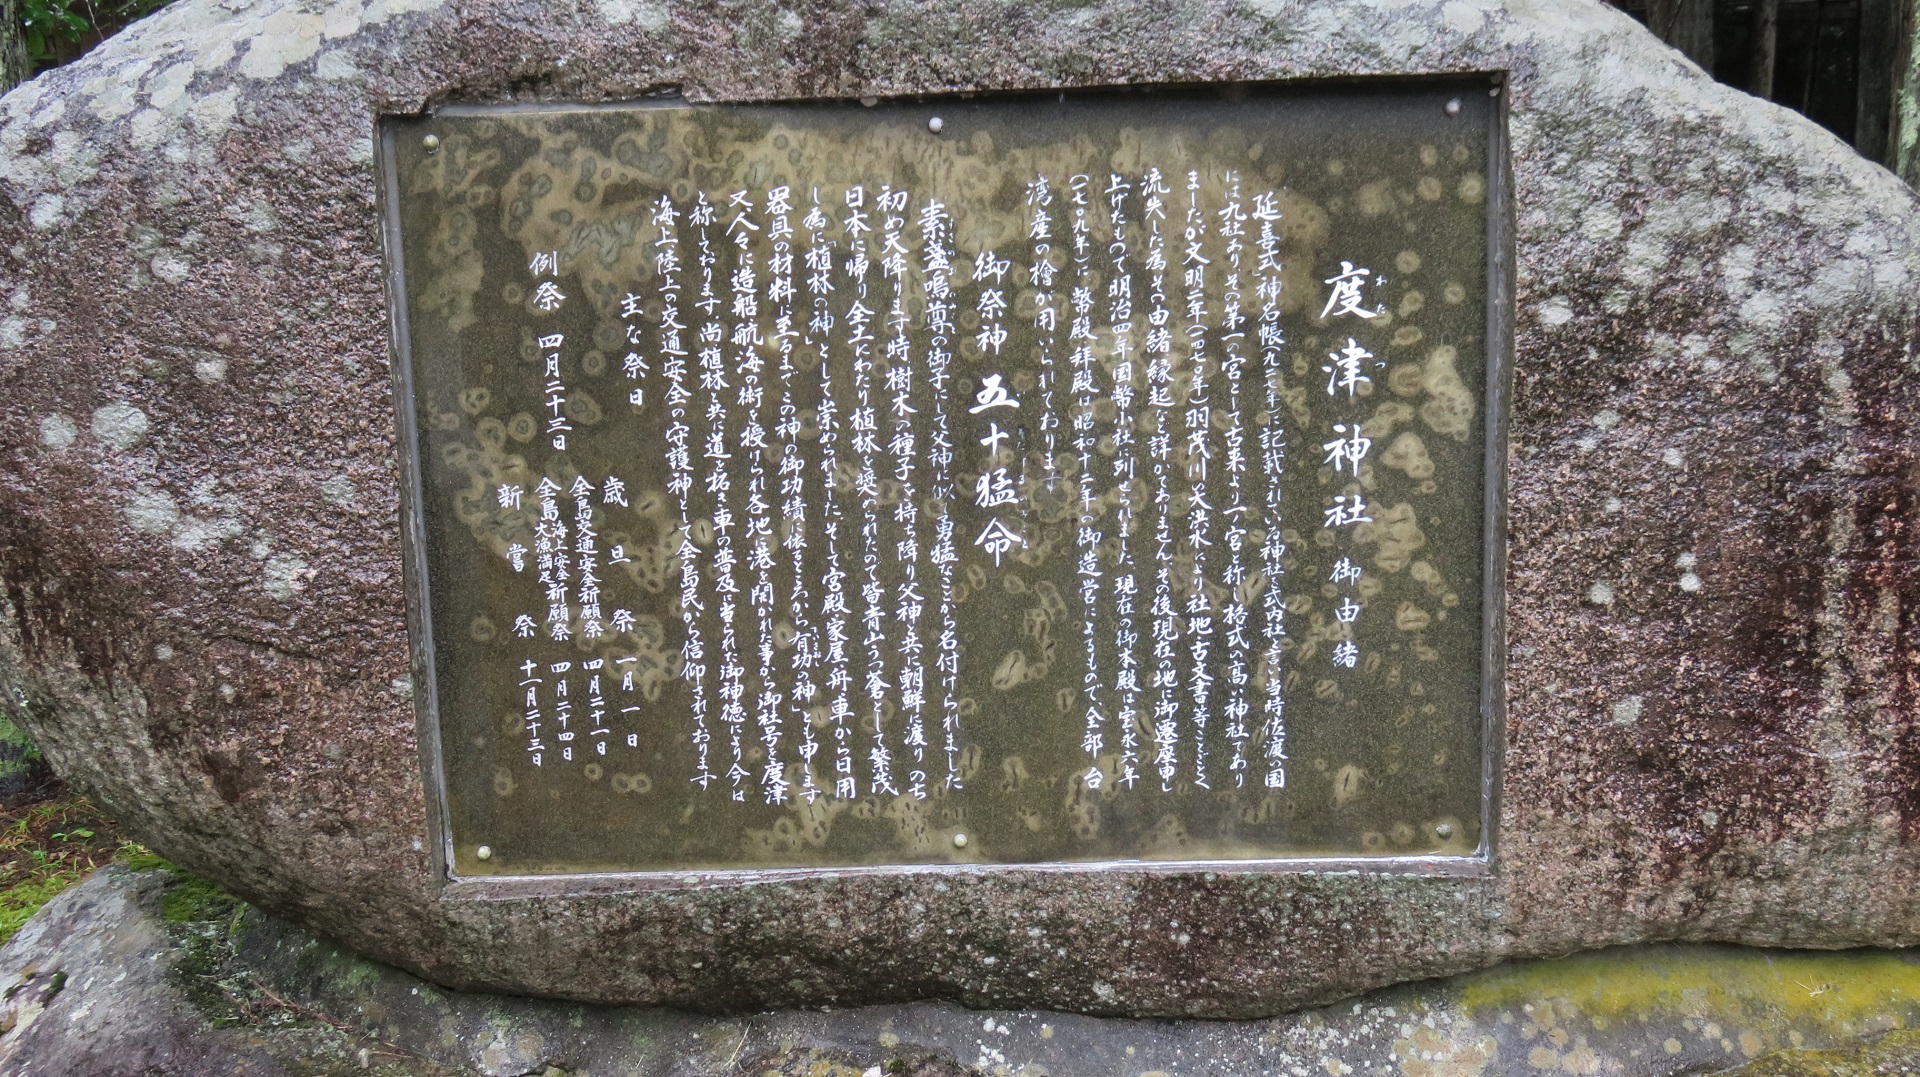 度津神社 御由緒
わたつ
延喜式神名帳(九二七年)に記載されている神社を式内社と言い当時佐渡の国
には九社ありその第一の宮として古来より一ノ宮と称し格式の高い神社であり
ましたが文明二年(一四七〇年)羽茂川の大洪水により社地古文書等ことごとく
流失した為その由緒縁起など詳かでありません。その後現在の地に御遷座申し
上げたもので明治四年国幣小社に列せられました。現在の御本殿は宝永六年
(一七〇九年)に幣殿拝殿は昭和十二年の御造営によるもので、全部台
湾産の檜が用いられております。
御祭神 五十猛命
素盞嗚尊の御子にして父神に似て勇猛なことから名付けられました
初め天降ります時樹木の種子を持ち降り父神と共に朝鮮に渡りのち
日本に帰り全土にわたり植林を奨められたので皆青山うつ蒼として繁茂
し為に「植林の神」として崇められました。そして宮殿家屋舟車から日用
器具の材料に至るまでこの神の御功績に依るところから「有功の神」とも申します
いさおし
又人々に造船航海の術を授けられ各地に港を開かれた事から御社号を度津
と称しております。尚植林と共に道を拓き車の普及に当られた御神徳により今は
海上陸上の交通安全の守護神として全島民から信仰されております
主な祭日
歳旦祭 一月一日
全島交通安全祈願祭 四月二十一日
全島海上安全大漁満足祈願祭 四月二十四日
例祭 四月二十三日
新嘗祭 十一月二十三日